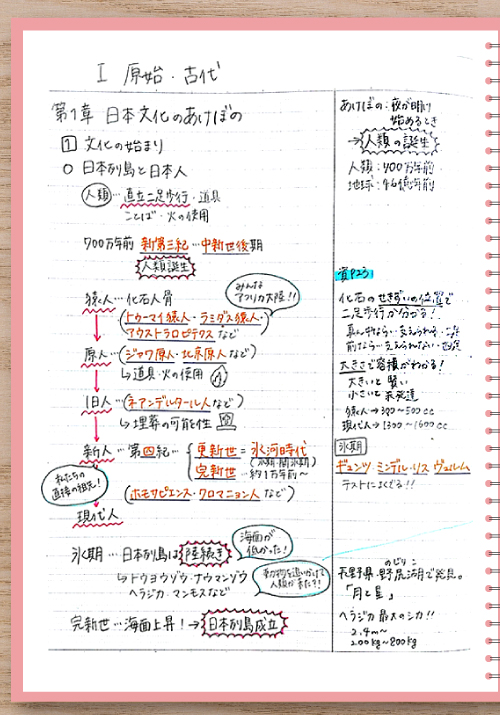 I 原始・古代
第1章 日本文化のあけぼの
1 文化の始まり
○ 日本列島と日本人
人類…直立二足歩行・道具
ことば・火の使用
700万年前 新第三紀…中新世後期
人類誕生
みんな
アフリカ大陸!!
猿人…化石人骨
(トゥーマイ猿人・ラミダス猿人・
アウストラロピテクス など)
原人…(ジャワ原人・北京原人など)
↳道具・火の使用
旧人…(ネアンデルタール人など)
↳埋葬の可能性
新人…第四紀…
更新世=氷河時代
(氷期・間氷期)
完新世…約1万年前~
私たちの
直接の祖先!
(ホモサピエンス・クロマニョン人 など)
現代人
氷期…日本列島は陸続き
海面が
低かった!
↳トウヨウゾウ・ナウマンゾウ
ヘラジカ・マンモスなど
動物を追いかけて
人類が来た!?
完新世…海面上昇!→日本列島成立
あけぼの:夜が明け
始めるとき
→人類の誕生
人類:700万年前
地球:46億年前
資P23
化石のせきずいの位置で
二足歩行が分かる!
真ん中なら…支えられる
前なら…支えられない
大きさで容積がわかる!
大きいと賢い
小さいと未発達
猿人→390~500cc
現代人→1300~1600cc
氷期
ギュンツ・ミンデル・リス・ヴュルム
テストによくでる!!
のじりこ
長野県・野尻湖で発見。
「月と星」
ヘラジカ 最大のシカ!!
2.4m~
200kg~800kg